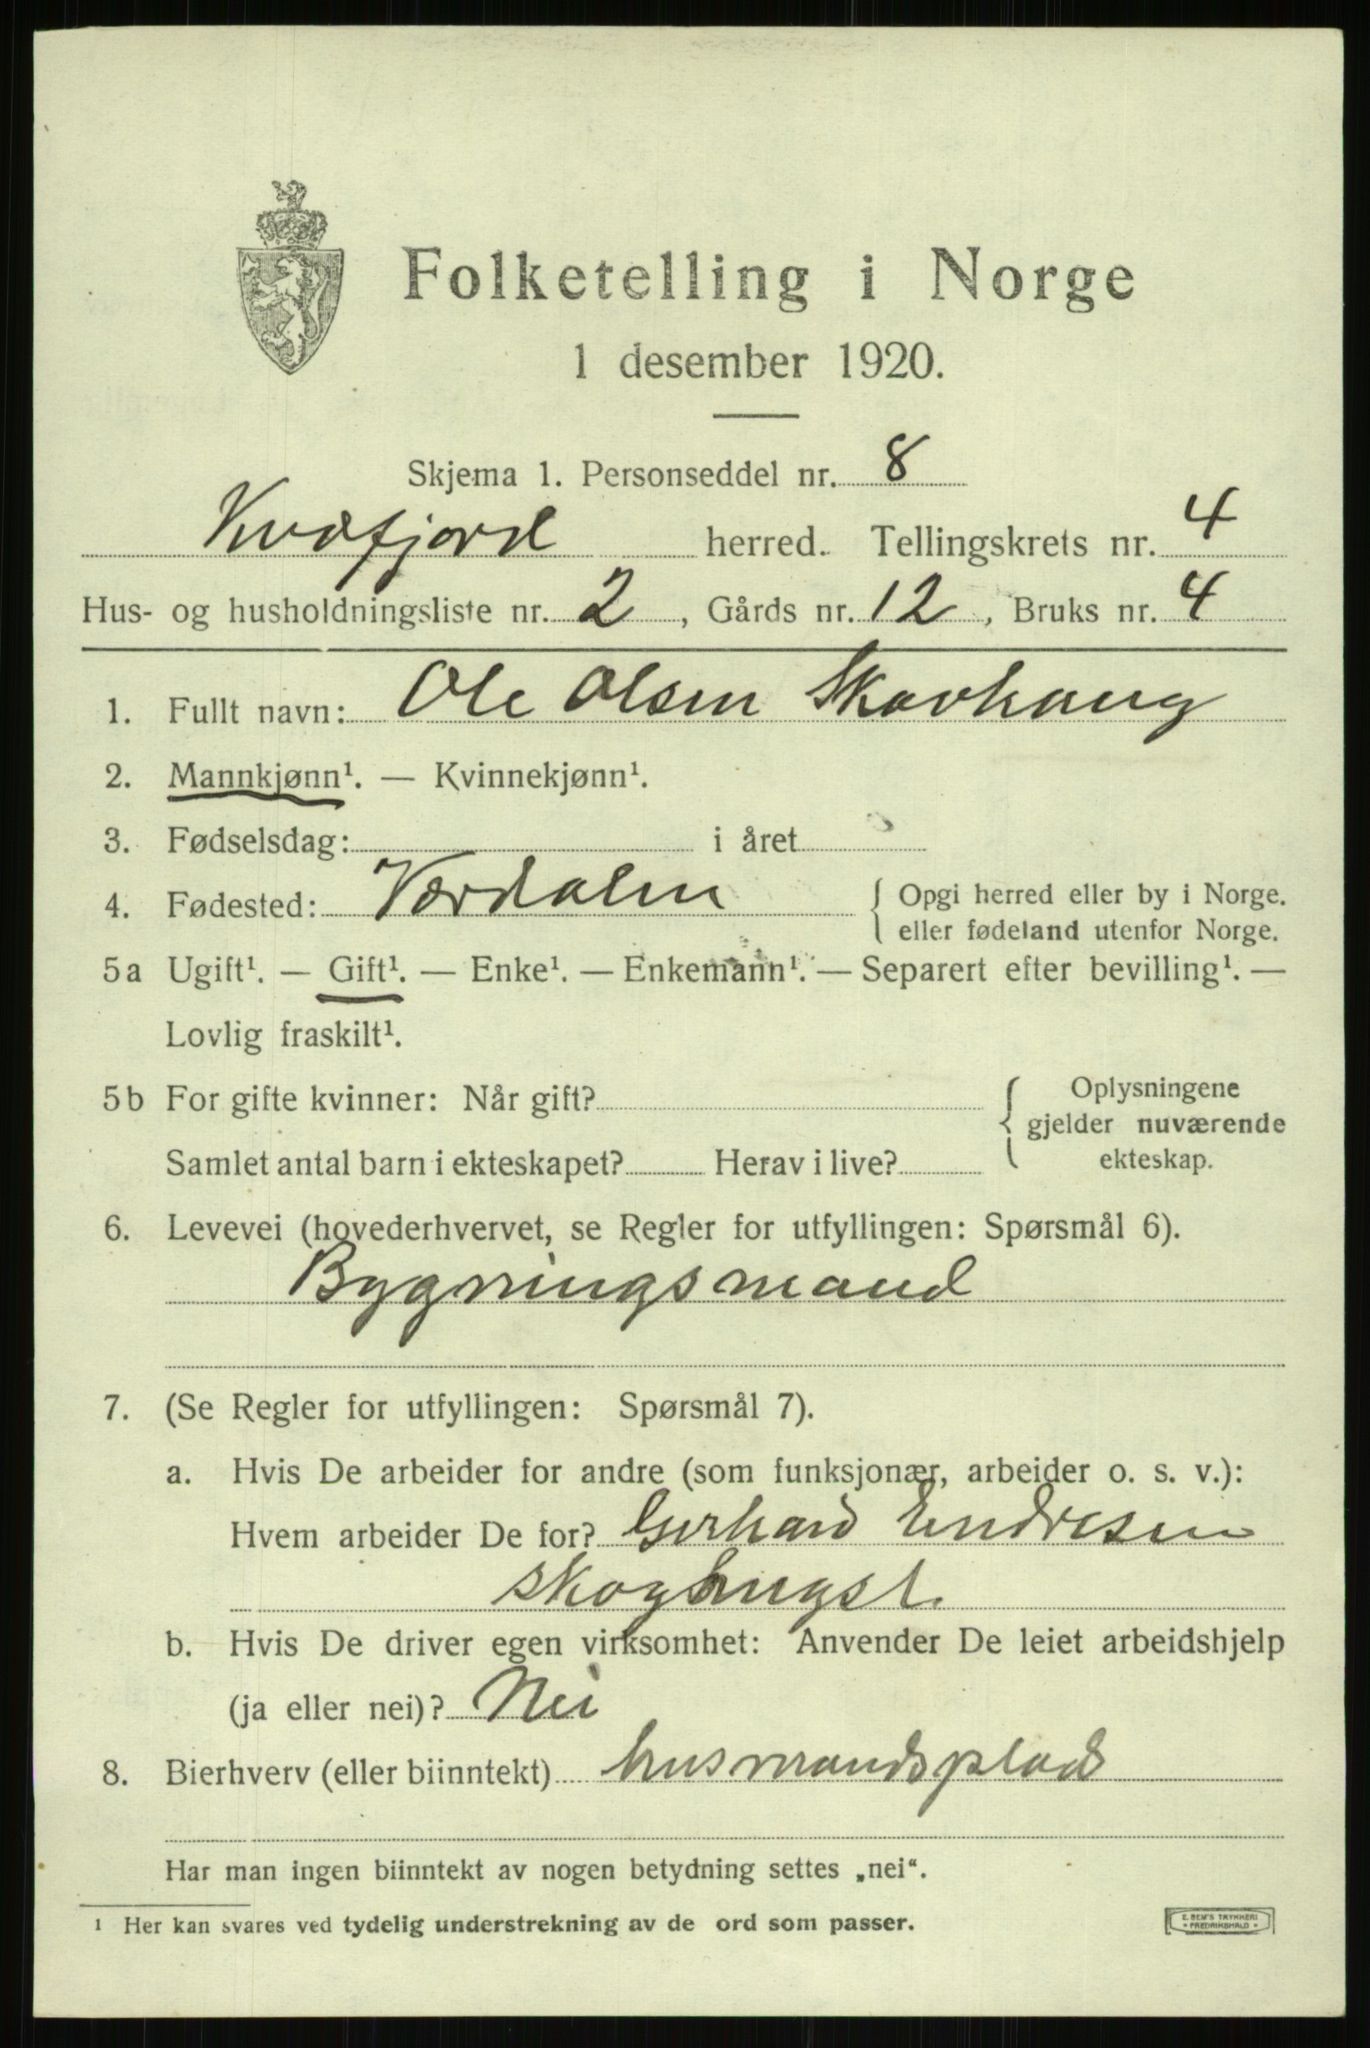 Folketelling i Norge
1 desember 1920.
Skjema 1. Personseddel nr. 8
Kvæfjord herred. Tellingskrets nr. 4
Hus- og husholdningsliste nr. 2, Gårds nr. 12, Bruks nr. 4
1. Fullt navn: Ole Olsen Skovhaug
2. Mannkjønn¹. — Kvinnekjønn¹.
3. Fødselsdag: i året
4. Fødested: Værdalen { Opgi herred eller by i Norge.
eller fødeland utenfor Norge.
5a Ugift¹. — Gift¹. — Enke¹. — Enkemann¹. — Separert efter bevilling¹. —
Lovlig fraskilt¹.
5b For gifte kvinner: Når gift? { Oplysningene
gjelder nuværende
Samlet antal barn i ekteskapet? Herav i live? ekteskap.
6. Levevei (hovederhvervet, se Regler for utfyllingen: Spørsmål 6).
Bygningsmand
7. (Se Regler for utfyllingen: Spørsmål 7).
a. Hvis De arbeider for andre (som funksjonær, arbeider o. s. v.):
Hvem arbeider De for? Gerhard Endresen
b. Hvis De driver egen virksomhet: Anvender De leiet arbeidshjelp
(ja eller nei)? Nei
8. Bierhverv (eller biinntekt) husmandsplads
Har man ingen biinntekt av nogen betydning settes „nei“.
¹ Her kan svares ved tydelig understrekning av de ord som passer.
E. SEM'S TRYKKERI
FREDRIKSHALD